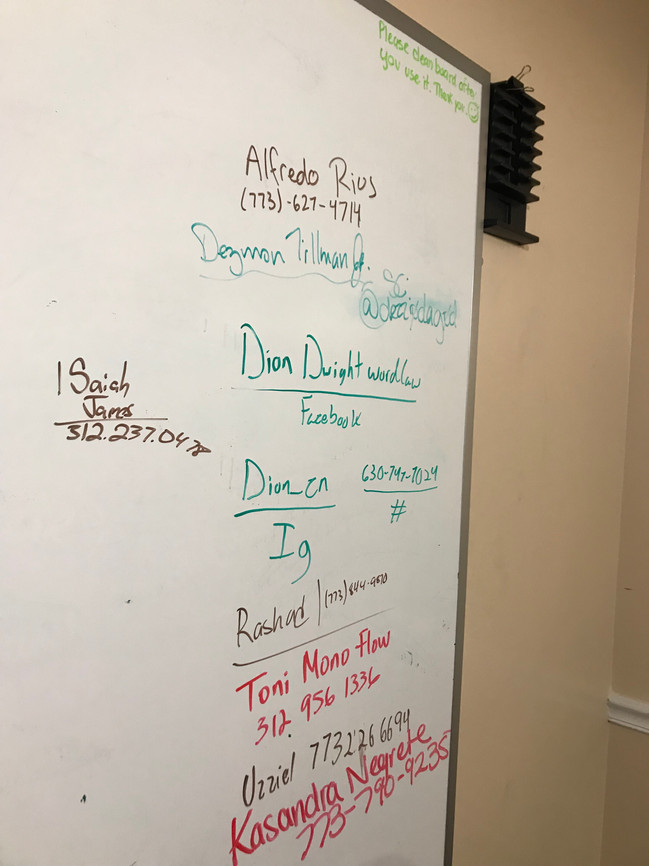 Please clean board after
you use it. Thank you
Alfredo Rius
(773)-627-4714
Dezmon Tillman Jr.
SC:
Dion Dwight wordlaw
Facebook
ISaiah
James
312.237.0478
Dion_zn
Ig
630-747-7024
#
Rashad (773) 844-9870
Toni Mono Flow
312 956 1336
Uzziel 7732266694
Kasandra Negrete
773-790-9235